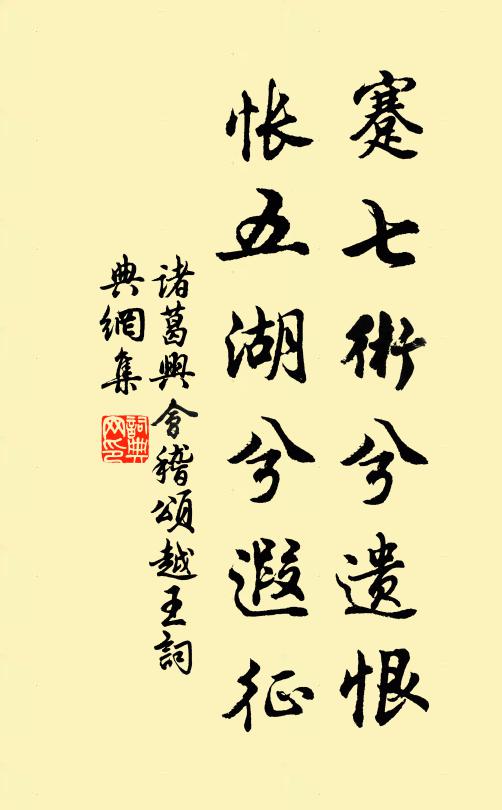 蹇七術兮遺恨
悵五湖兮遐征
諸葛興會稽頌越王詞
典網集
詞典網印